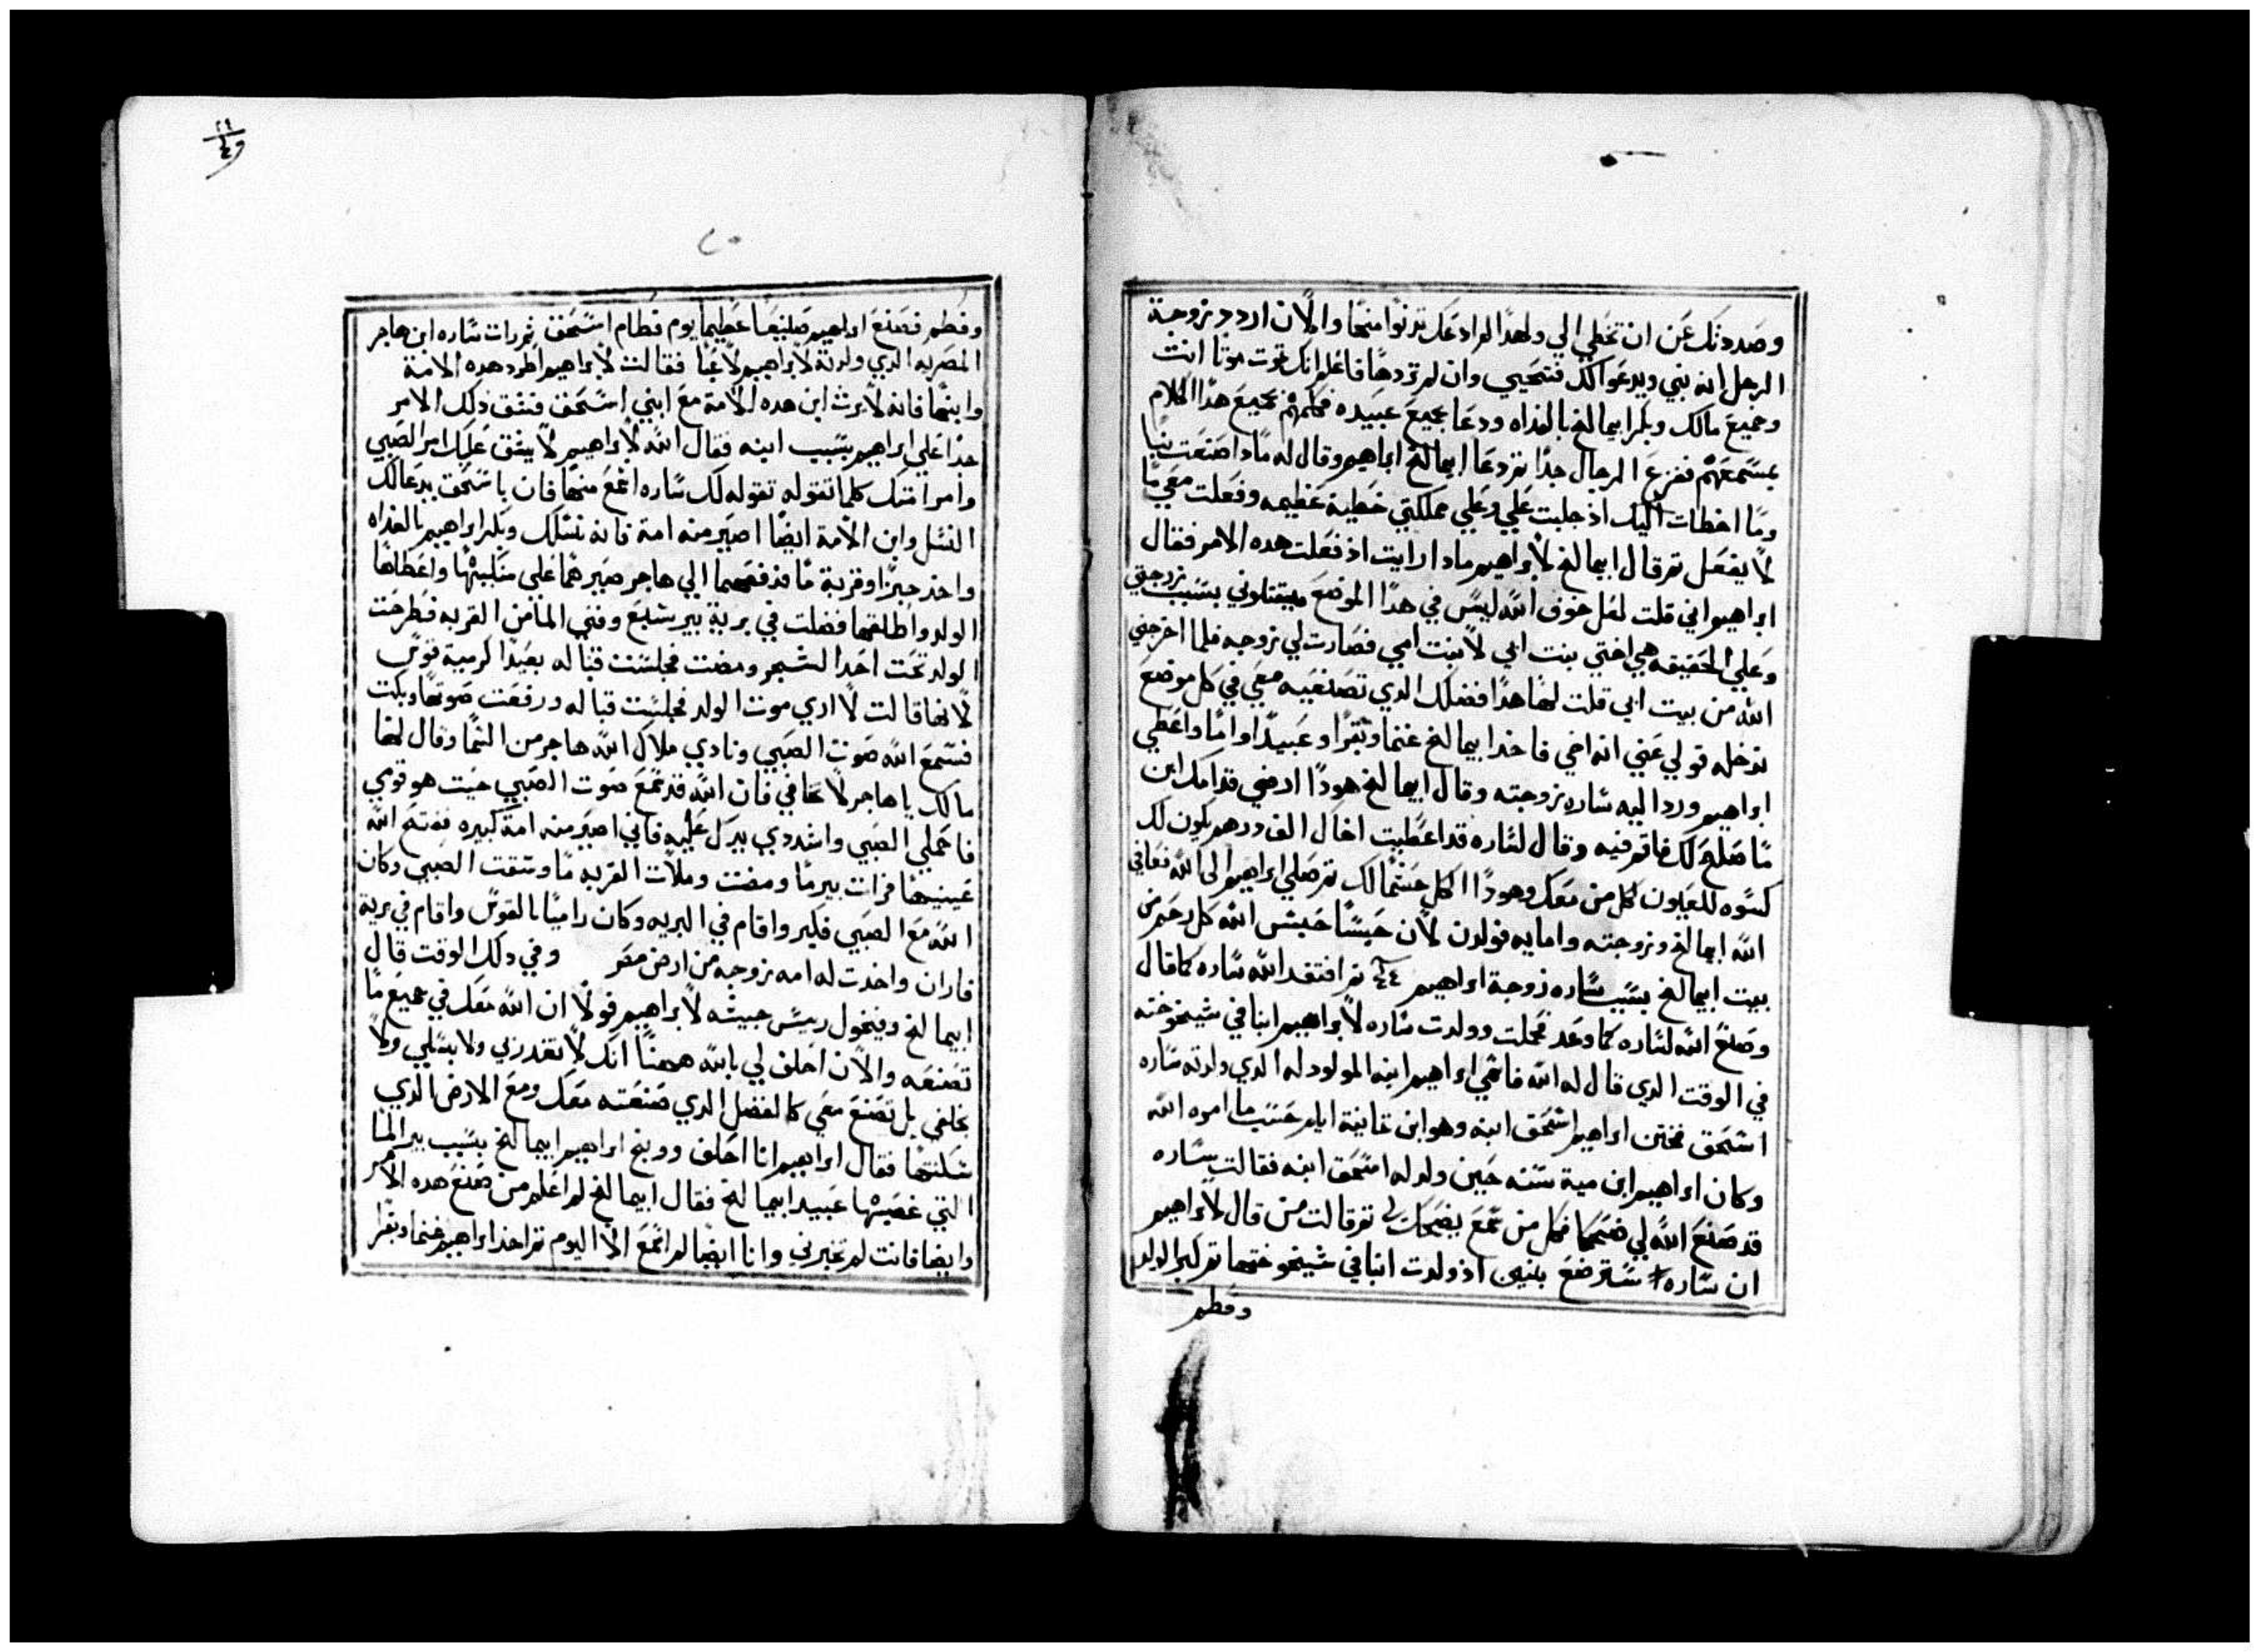 وصددتك عن ان تخطي الي ولهدا لم ادعك تدنوا منها والان اردد زوجة
الرجل انه نبي ويدعوا لك فتحيي وان لم تردها فاعلم انك تموت موتا انت
وجميع مالك وبكر ابيمالخ بالغداه ودعا بجميع عبيده فكلمهم بجميع هدا الكلام
بمسمعهم ففزع الرجال جدا ثم دعا ابيمالخ ابراهيم وقال له مادا صنعت بنا
وما اخطات اليك اذ جلبت علي وعلي مملكتي خطية عظيمه وفعلت معي ما
لا يفعل ثم قال ابيمالخ لابراهيم مادا رايت اذ فعلت هده الامر فقال
ابراهيم اني قلت لعل خوف الله ليس في هدا الموضع فيقتلوني بسبب زوجتي
وعلي الحقيقه هي اختي بنت ابي لا بنت امي فصارت لي زوجه فلما اخرجني
الله من بيت ابي قلت لها هدا فضلك الدي تصنعيه معي في كل موضع
ندخله قولي عني انه اخي فاخد ابيمالخ غنما وبقرا وعبيدا واما واعطي
ابراهيم ورد اليه ساره زوجته وقال ابيمالخ هودا ارضي قدامك اين
ما صلح لك فاقم فيه وقال لساره قد اعطيت اخاك الف درهم يكون لك
كسوه للعيون كل من معك وهودا الكل حسما لك ثم صلي ابراهيم الي الله فعافي
الله ابيمالخ وزوجته وامايه فولدن لان حبسا حبس الله كل رحم من
بيت ابيمالخ بسبب ساره زوجة ابراهيم ثم افتقد الله ساره كما قال
وصنع الله لساره كما وعد فحملت وولدت ساره لابراهيم ابنا في شيخوخته
في الوقت الدي قال له الله فاسمي ابراهيم ابنه المولود له الدي ولدته ساره
اسحق فختن ابراهيم اسحق ابنه وهو ابن تمانية ايام حسب ما امره الله
وكان ابراهيم ابن مية سنه حين ولد له اسحق ابنه فقالت ساره
قد صنع الله لي ضحكا فكل من سمع يضحك لي ثم قالت من قال لابراهيم
ان ساره سترضع بنين اذ ولدت ابنا في شيخوختها ثم كبر الولد
وفطم
٢٩
٤
٢٠
وفطم فصنع ابراهيم صنيعا عظيما يوم فطام اسحق ثم رات ساره ابن هاجر
المصريه الدي ولدته لابراهيم لاعبا فقالت لابراهيم اطرد هده الامة
وابنها فانه لا يرث ابن هده الامة مع ابني اسحق فشق دلك الامر
جدا علي ابراهيم بسبب ابنه فقال الله لابراهيم لا يشق عليك امر الصبي
وامر امتك كلما تقوله لك ساره اسمع منها فان باسحق يدعا لك
النسل وابن الامة ايضا اصير منه امة فانه نسلك وبكر ابراهيم بالغداه
واخد خبزا وقربة ما فدفعهما الي هاجر صيرهما علي منكبيها واعطاها
الولد واطلقها فضلت في برية بير شبع وفني الما من القربه فطرحت
الولد تحت احدا الشجر ومضت فجلست قباله بعيدا كرمية قوس
لانها قالت لا اري موت الولد فجلست قباله ورفعت صوتها وبكت
فسمع الله صوت الصبي ونادي ملاك الله هاجر من السما وقال لها
مالك يا هاجر لا تخافي فان الله قد سمع صوت الصبي حيت هو قومي
فاحملي الصبي واشددي يدك عليه فاني اصير منه امة كبيره ففتح الله
عينيها فرات بير ما ومضت وملات القربه ما وسقت الصبي وكان
الله مع الصبي فكبر واقام في البريه وكان راميا بالقوس واقام في برية
فاران واخدت له امه زوجه من ارض مصر وفي دلك الوقت قال
ابيمالخ وفيخول ريس جيشه لابراهيم قولا ان الله معك في جميع ما
تصنعه والان احلف لي بالله ههنا انك لا تغدر بي ولا بنسلي ولا
بخلفي بل تصنع معي كالفضل الدي صنعته معك ومع الارض الدي
سكنتها فقال ابراهيم انا احلف ووبخ ابراهيم ابيمالخ بسبب بير الما
التي غصبها عبيد ابيمالخ فقال ابيمالخ لم اعلم من صنع هده الامر
وايضا فانت لم تخبرني وانا ايضا لم اسمع الا اليوم ثم اخد ابراهيم غنما وبقرا